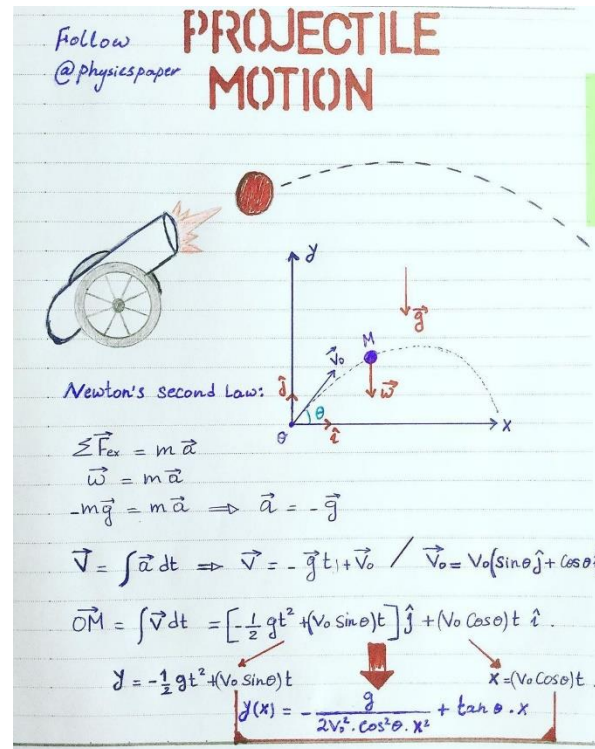 Follow
@physicspaper
PROJECTILE
MOTION
y
g⃗
M
V⃗₀
w⃗
ĵ
θ
O
î
x
Newton's second Law:
ΣF⃗ₑₓ = m a⃗
w⃗ = m a⃗
-mg⃗ = m a⃗ ⇒ a⃗ = - g⃗
V⃗ = ∫a⃗ dt ⇒ V⃗ = - g⃗t + V⃗₀ / V⃗₀ = V₀(sinθĵ + cosθ
OM⃗ = ∫V⃗dt = [-½ gt² + (V₀ sinθ)t] ĵ + (V₀ Cosθ)t î .
y = -½ gt² + (V₀ sinθ)t
x = (V₀ Cosθ)t .
y(x) = - g / 2V₀² . cos²θ . x² + tan θ . x